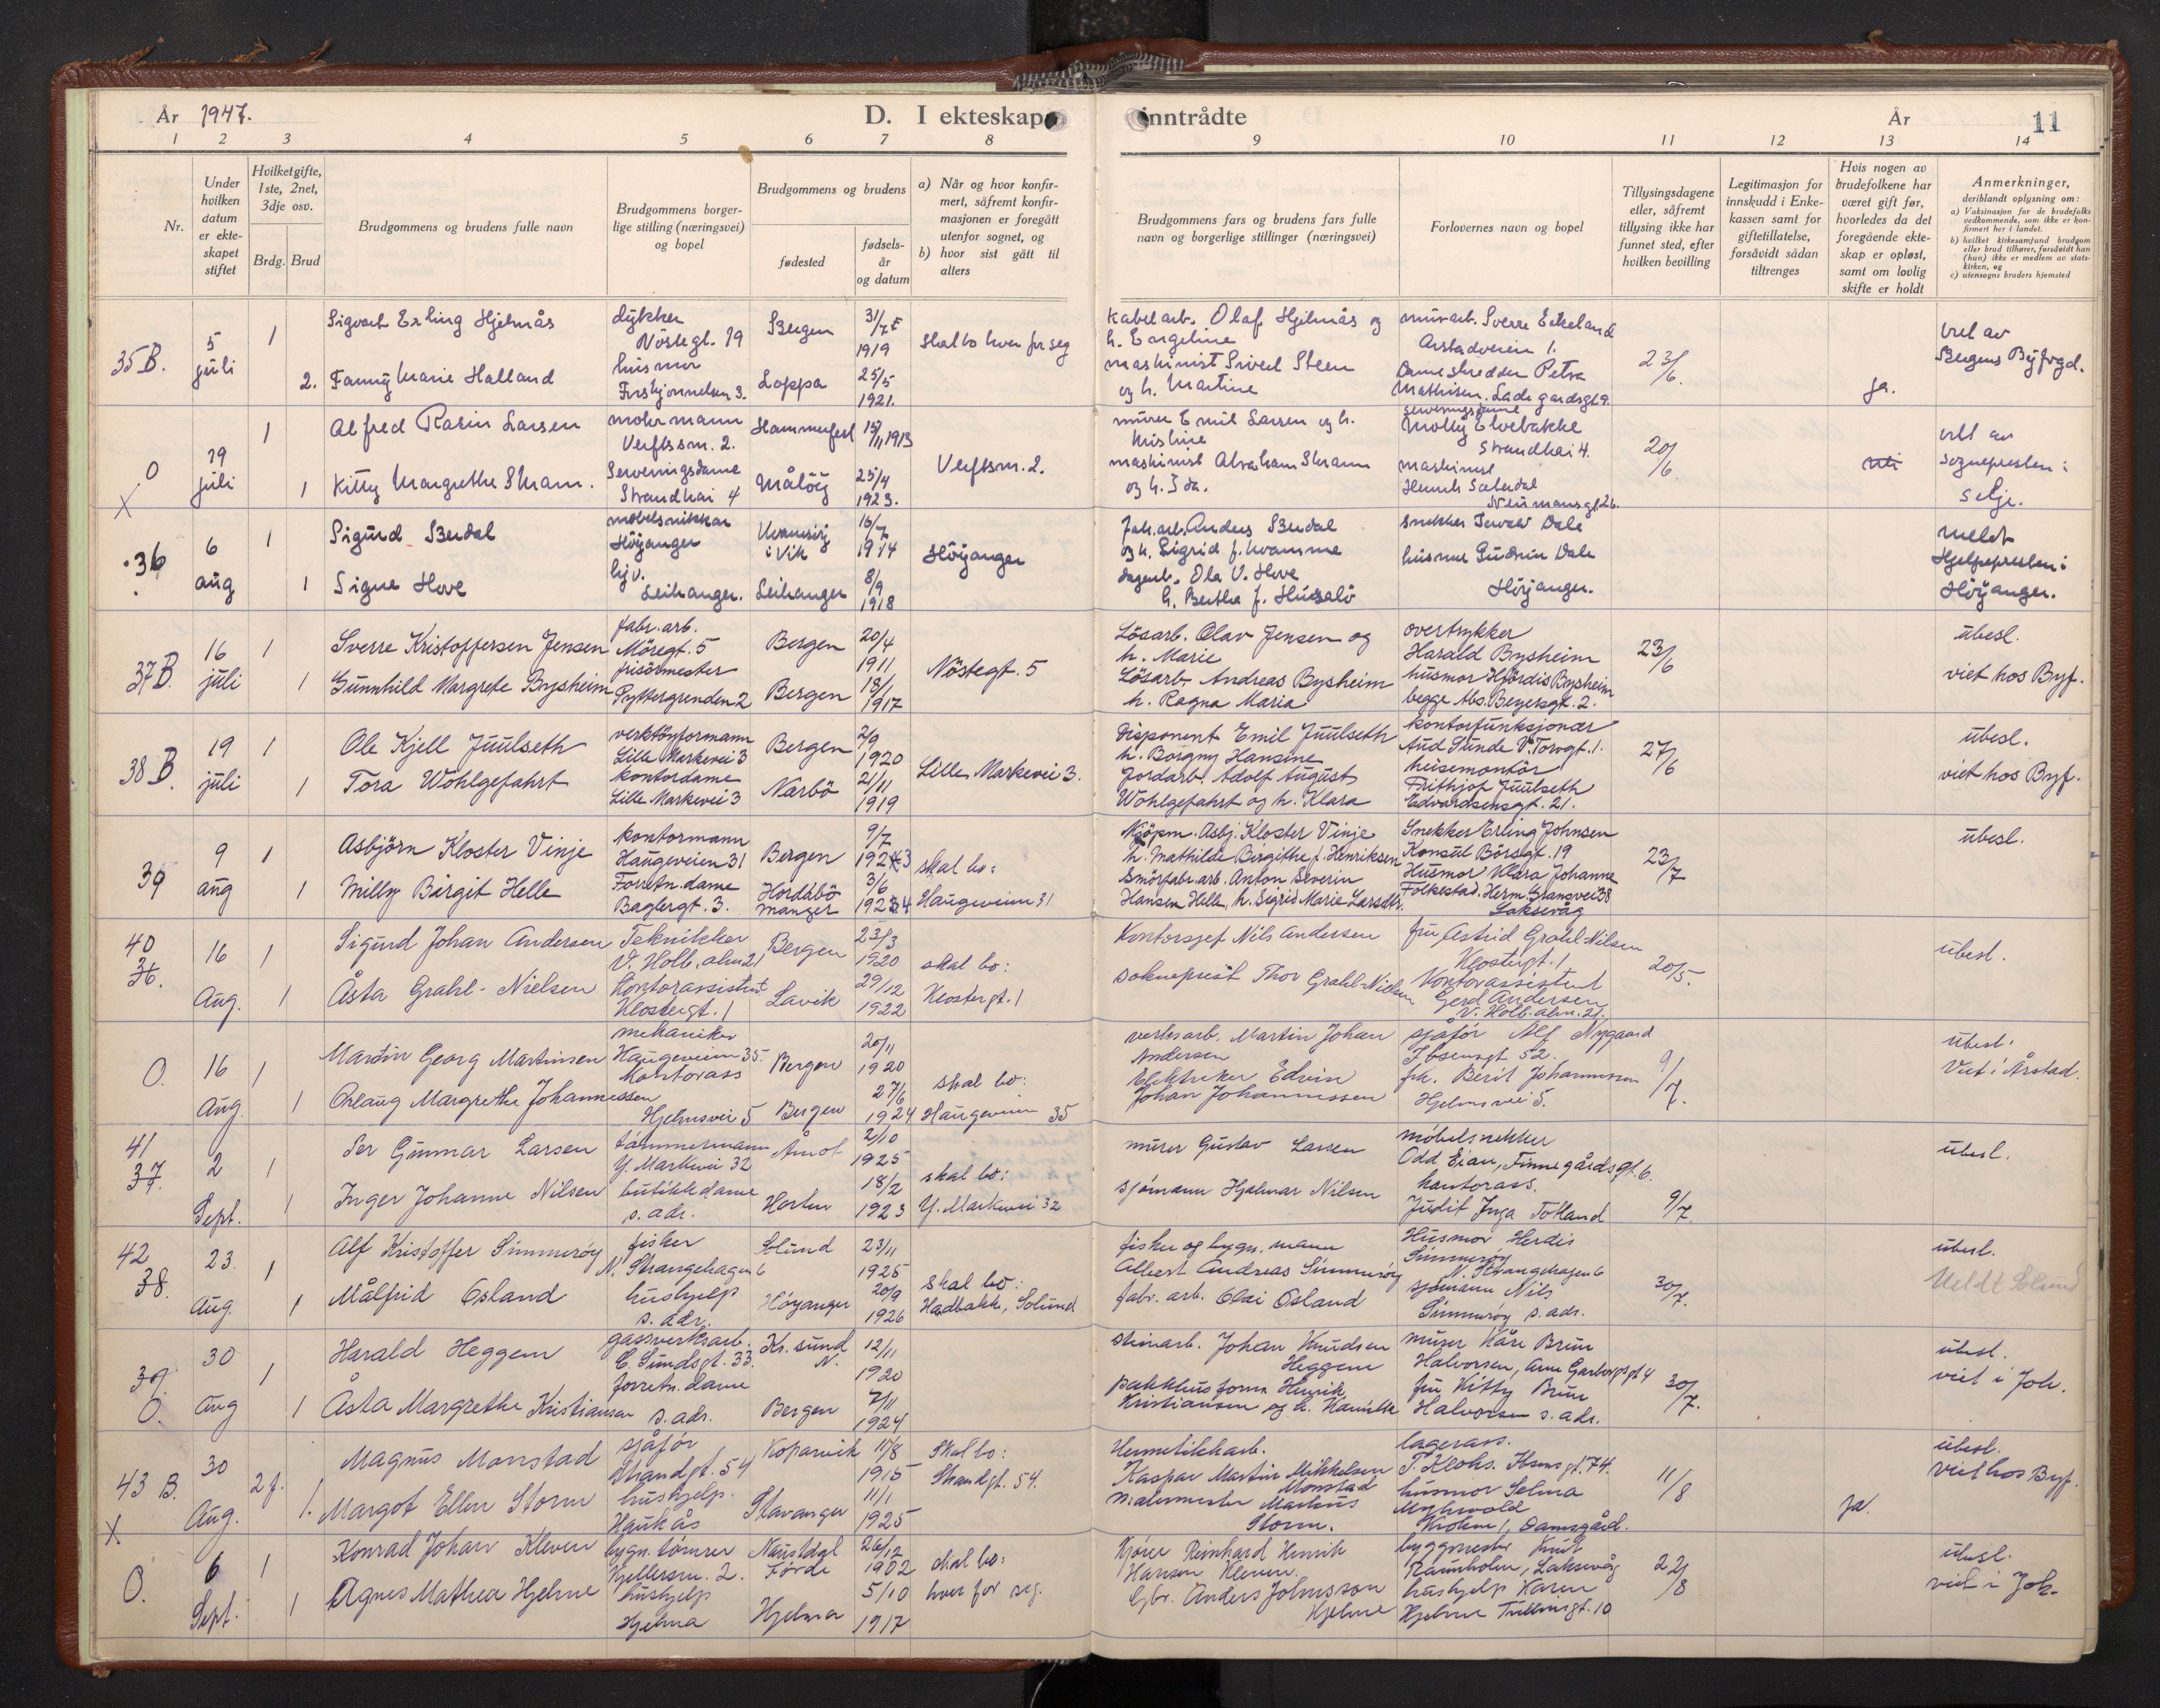 År 1947.
D. I ekteskap inntrådte
År
11
1 2 3 4 5 6 7 8 9 10 11 12 13 14
Nr.
Under hvilken datum er ekteskapet stiftet
Hvilket gifte, 1ste, 2net, 3dje osv.
Brdg. Brud
Brudgommens og brudens fulle navn
Brudgommens borgerlige stilling (næringsvei) og bopel
Brudgommens og brudens
fødested
fødselsår og datum
a) Når og hvor konfirmert, såfremt konfirmasjonen er foregått utenfor sognet, og
b) hvor sist gått til alters
Brudgommens fars og brudens fars fulle navn og borgerlige stillinger (næringsvei)
Forlovernes navn og bopel
Tillysingsdagene eller, såfremt tillysing ikke har funnet sted, efter hvilken bevilling
Legitimasjon for innskudd i Enkekassen samt for giftetillatelse, forsåvidt sådan tiltrenges
Hvis nogen av brudefolkene har været gift før, hvorledes da det foregående ekteskap er opløst, samt om lovlig skifte er holdt
Anmerkninger, deriblandt oplysning om:
a) Vaksinasjon for de brudefolks vedkommende, som ikke er konfirmert her i landet.
b) hvilket kirkesamfund brudgom eller brud tilhører, forsåvidt han (hun) ikke er medlem av statskirken, og
c) utensogns bruders hjemsted
35 B.
5 juli
1
Sigvart Erling Hjelmås
dykker
Nöstegt. 19
Bergen
31/7
1919
skal bo hver for seg
2. Fanny Marie Halland
husmor
Loppa
25/5
1921.
kabelarb. Olaf Hjelmås og
h. Engeline
maskinist Sivert Steen
og h. Martine
murarb. Sverre Eikeland
Årstadveien 1.
Petra
Mathisen. Ladegardsgt 9.
23/6.
ja.
viet av
Bergens Byfogd.
O
X
19 juli
1
Alfred Larsen
Verftssm. 2.
Hammerfest
15/11 1913
Verftsm. 2.
1 Kitty Margrethe Skram.
Serveringsdame
Strandkai 4
Måløy
25/4
1923.
murer Emil Larsen og h.
Kristine
maskinist Abraham Skram
og h. Ida.
serveringsdame
Molly Elvebakke
Strandkai 4.
maskinist
Henrik Sæterdal
Neumansgt 26.
20/6
nei
viet av
sognepresten i
Selje.
36
6 aug
1
Sigurd Berdal
møbelsnikkar
Höyanger
i Vik
16/7
1914
Höyanger
1 Signe Hove
hjv.
Leikanger.
Leikanger
8/9
1918
fab.arb. Anders Berdal
og h. Sigrid f. Kvamme
Ola V. Hove
h. Bertha f. Husalö
snekker Dale
husmor Gudrun Dale
Höyanger.
meldt
Hjelpepresten i
Höyanger.
37 B.
16 juli
1
Sverre Kristoffersen Jensen
fabr. arb.
Möregt. 5
Bergen
20/4
1911
Nöstegt. 5
1 Gunnhild Margrete Bysheim
frisörmester
Ryttergrenden 2
Bergen
18/1
1917
Lösarb. Olav Jensen og
h. Marie
Lösarb. Andreas Bysheim
h. Ragna Maria
overtrykker
Harald Bysheim
husmor Hjördis Bysheim
begge Abs. Beyersgt. 2.
23/6
übesl.
viet hos Byf.
38 B.
19 juli
1
Ole Kjell Juulseth
verktöyformann
Lille Markevei 3
Bergen
2/9
1920
Lille Markevei 3.
1 Tora Wohlgefahrt
kontordame
Lille Markevei 3
Nærbö
21/11
1919
Disponent Emil Juulseth
h. Borgny Hansine
Jordarb. Adolf August
Wohlgefahrt og h. Klara
kontorfunksjonær
Aud Sunde V. Torvgt. 1.
heisemontör
Frithjof Juulseth
Edvardsensgt. 21.
27/6
übesl.
viet hos Byf.
39
9 aug
1
Asbjörn Kloster Vinje
kontormann
Haugeveien 31
Bergen
9/7
1923
skal bo:
1 Milly Birgit Helle
Forretn. dame
Baglergt. 3.
Hordabö
Manger
3/6
1924
Haugeveien 31
Kjöpm. Asbj. Kloster Vinje
h. Mathilde Birgithe f. Henriksen
Smörfabr. arb. Anton Severin
Hansen Helle, h. Sigrid Marie Larsdtr.
Snekker Erling Johnsen
Konsul Börsgt. 19
Husmor Klara Johanne
Folkestad. Herm. Gransvei 38
Laksevåg
23/7
übesl.
40
36.
16 Aug.
1
Sigurd Johan Andersen
Teknikker
V. Holb. alm 21
Bergen
23/3
1920
skal bo:
1 Åsta Grahl-Nielsen
Kontorassistent
Klostergt. 1
Lavik
29/12
1922
Klostergt. 1
Kontorsjef Nils Andersen
sokneprest Thor Grahl-Nielsen
fru Astrid Grahl-Nilsen
Klostergt. 1
Kontorassistent
Gerd Andersen
V. Holb. alm. 21.
20/5.
übesl.
O.
16 Aug.
1
Martin Georg Martinsen
mekaniker
Haugeveien 35.
Bergen
20/11
1920
skal bo:
1 Oslaug Margrethe Johannessen
Kontorass
Hjelmsvei 5
Bergen
27/6
1924
Haugeveien 35
verksarb. Martin Johan
Andersen
Elektriker Edvin
Johan Johannessen
sjåför Alf Nygaard
Ibsensgt 52.
frk. Berit Johannessen
Hjelmsvei 5.
9/7.
übesl.
Viet i Årstad.
41
37.
2 Sept.
1
Per Gunnar Larsen
tømmermann
Y. Markevei 32
Åmot
2/10
1925
skal bo:
1 Inger Johanne Nilsen
butikkdame
s. adr.
Horten
18/2
1923
Y. Markevei 32
murer Gustav Larsen
sjømann Hjalmar Nilsen
møbelsnekker
Odd Eian, Finnegårdsgt. 6.
kontorass.
Judit Inga Totland
9/7.
übesl.
42
38.
23. Aug.
1
Alf Kristoffer Simmerøy
fisker
N. Strangehagen 6
Solund
23/11
1925
skal bo:
1 Målfrid Osland
hushjelp
s. adr.
Høyanger
20/9
1926
Hadbakk, Solund
fisker og bygn. mann
Albert Andreas Simmerøy
fabr. arb. Olai Osland
Husmor Herdis
Simmerøy
N. Strangehagen 6
sjømann Nils
Simmerøy s. adr.
30/7.
übesl.
Meldt Solund
39.
O.
30 Aug
1
Harald Heggem
gassverksarb.
C. Sundsgt. 33.
Kr. sund N.
12/11
1920
1 Åsta Margrethe Kristiansen
forretn. dame
s. adr.
Bergen
7/11
1924
steinarb. Johan Knudsen
Heggem
pakkhusform. Henrik
Kristiansen og h.
murer Kåre Brun
Halvorsen, Arne Garborgsgt 4
fru Kitty Brun
Halvorsen s. adr.
30/7.
übesl.
viet i Joh.
43 B.
X
30 Aug.
2 f.
Magnus Monstad
sjåför
Strandgt. 54
Kopervik
11/8
1915
Skal bo:
Strandgt. 54.
1. Margot Ellen Storm
hushjelp.
Haukås
Stavanger
11/1
1925
Hermetikkarb.
Kaspar Martin Mikkelsen
Monstad
malermester Markus
Storm.
lagerass.
Ibsensgt. 74.
husmor Selma
Myhrvold
Damsgård.
11/8
ja.
übesl.
viet hos Byf.
O.
6 Sept.
1
Konrad Johan Kleven
bygn. tømrer
Naustdal
Førde
26/12
1902
skal bo:
1 Agnes Mathea Hjelme
hushjelp
Hjelma
Hjelma
5/10
1917
hver for seg.
Kjører Reinhard Henrik
Hansen Kleven.
Gbr. Anders Johnsson
Hjelme
byggmester Knut
Ramnholm, Laksevåg
hushjelp Karen
Hjelme Tullinsgt. 10
22/8
übesl.
viet i Joh.